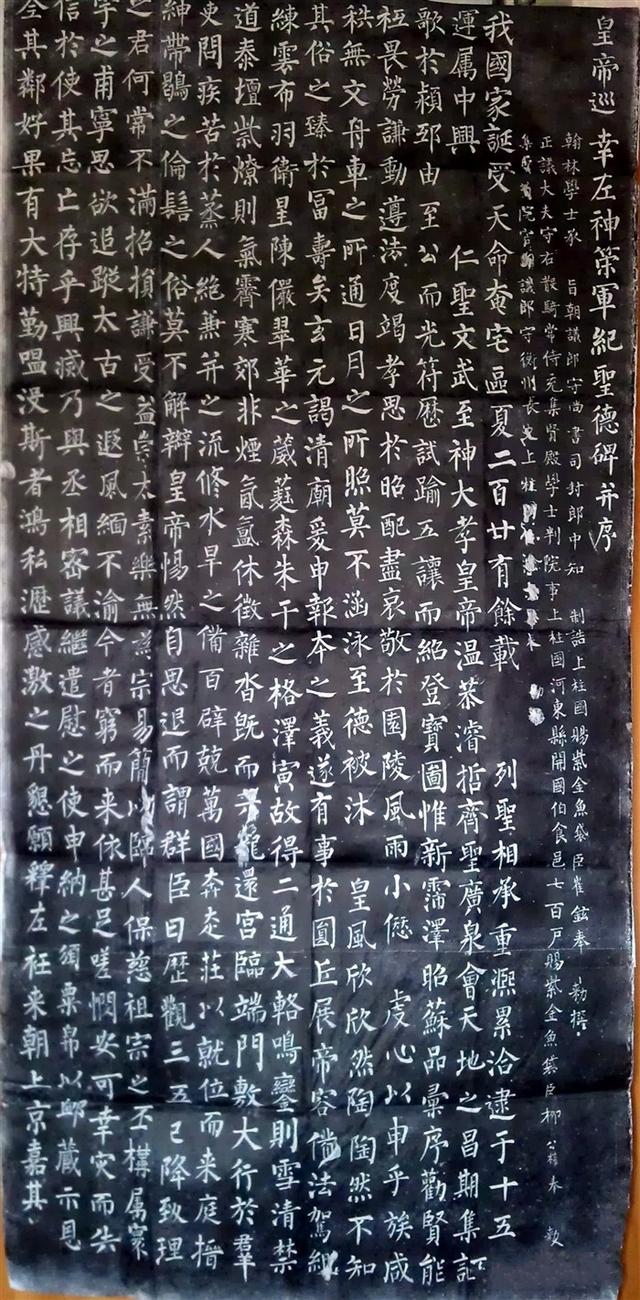 皇帝巡幸左神策軍紀聖德碑并序
翰林學士承旨朝議郎守尚書司封郎中知制誥上柱國賜紫金魚袋臣崔鉉奉勅撰
正議大夫守右散騎常侍充集賢殿學士判院事上柱國河東縣開國伯食邑七百戶賜紫金魚袋臣柳公權奉勅
集賢院官議郎守衡州長史上柱國
我國家誕受天命奄宅區夏二百廿有餘載列聖相承重熙累洽逮于十五
運属中興仁聖文武至神大孝皇帝温恭濬哲齊聖廣泉會天地之昌期集謳
歌於潁邳由至公而光符歷試踰五讓而紹登寶圖惟新霈澤昭蘇品彙序勸賢能
祗畏勞謙動遵法度竭孝思於昭配盡哀敬於園陵風雨小愆虔心以申乎族咸
秩無文舟車之所通日月之所照莫不涵泳至德被沐皇風欣欣然陶陶然不知
其俗之臻於富壽矣玄元謁清廟爰申報本之義遂有事於圓丘展帝容備法駕組
練雲布羽衛星陳儼翠華之葳蕤森朱干之格澤寅故得二通大輅鳴鑾則雪清禁
道泰壇紫燎則氣霽寒郊非煙氤氳休徵雜沓既而還宮臨端門敷大行於羣
吏問疾苦於蒸人絕兼并之流修水旱之備百辟兢兢萬國奔走莊以就位而来庭搢
紳帶鶡之倫髽之俗莫不解辮皇帝惕然自思退而謂群臣曰歷觀三五已降致理
之君何常不滿招損謙受益崇太素樂無為宗易簡以臨人保慈祖宗之丕構属寰
宇之甫寧思欲追蹤太古之遐風緬不渝今者窮而来依甚足嗟憫安可幸灾而失
信於使其忘亡存乎興滅乃與丞相密議繼遣慰之使申納之頒粟帛以邮藏示恩
全其鄰好果有大特勤嗢没斯者鴻私瀝感激之丹懇願釋左衽来朝上京嘉其